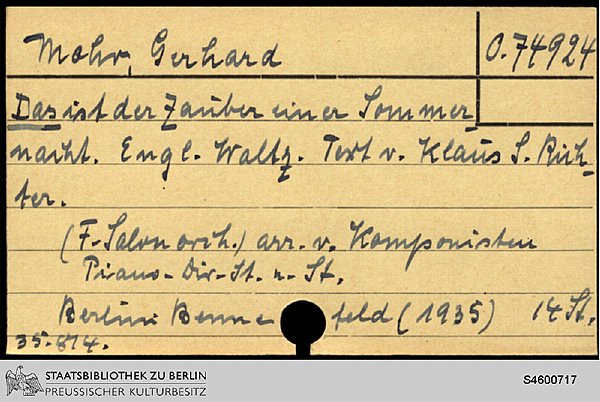 Mohr, Gerhard
O. 74924
Das ist der Zauber einer Sommer-
nacht. Engl. Waltz. Text v. Klaus S. Rich-
ter.
(F. Salonorch.) arr. v. Komponisten
Piano-Dir-St. u. St.
Berlin: Benne feld (1935) 14 St.
35.814.
STAATSBIBLIOTHEK ZU BERLIN
PREUSSISCHER KULTURBESITZ
S4600717